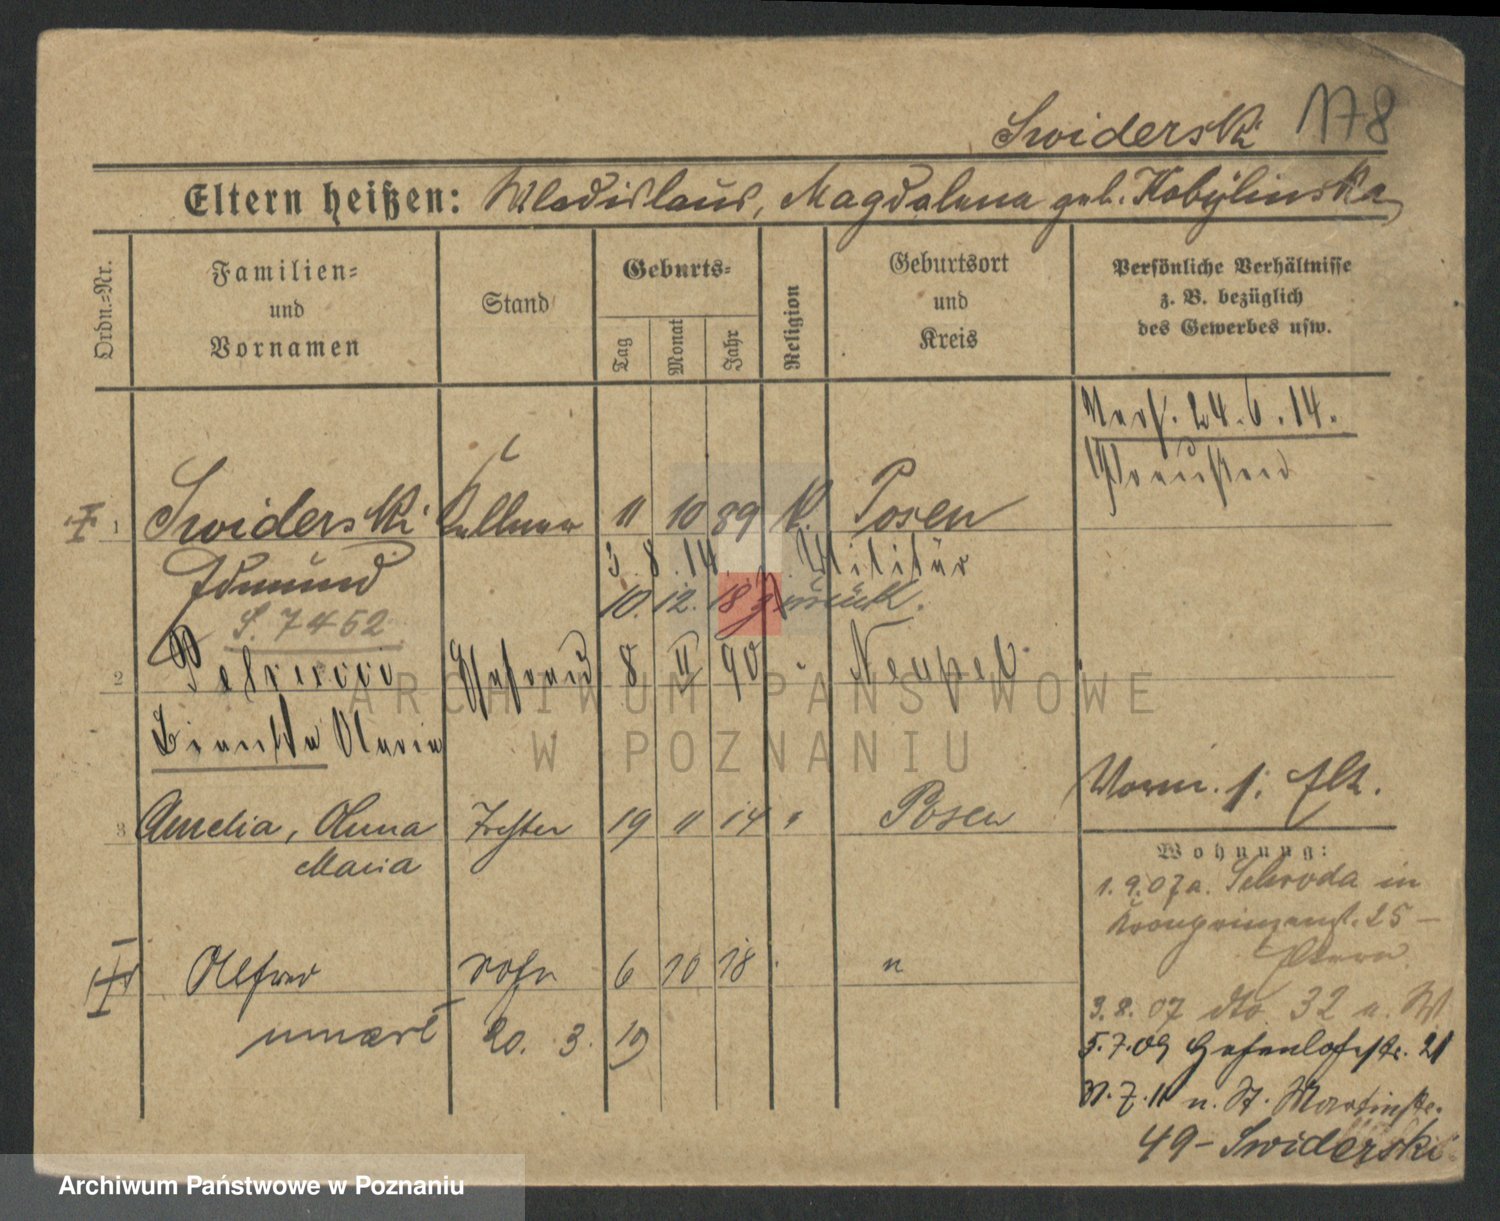 Swiderski 178
Eltern heißen: Wladislaus, Magdalena geb. Kobylinska
Ordn.-Nr.
Familien-
und
Vornamen
Stand
Geburts-
Tag
Monat
Jahr
Religion
Geburtsort
und
Kreis
Persönliche Verhältnisse
z. B. bezüglich
des Gewerbes usw.
24.6.14.
1 Swiderski Kellner 11 10 89 K. Posen
Edmund 3.8.14. Militär
S. 7462 10.12.18 zurück.
2 Ehefrau 8 II 90 " Neapel
Bianka Maria
3 Amelia, Anna Tochter 19 11 14 " Posen
Maria
Wohnung:
1.9.07 a. Schroda in
Kronprinzenst. 25 –
Eltern
Alfred Sohn 6 10 18 "
umarł 20. 3. 19
3.8.07 dto 32 a. W
5.7.09 Hohenlohestr. 21
31.7.11 n. St. Martinstr.
49 – Swiderski
ARCHIWUM PAŃSTWOWE
W POZNANIU
Archiwum Państwowe w Poznaniu